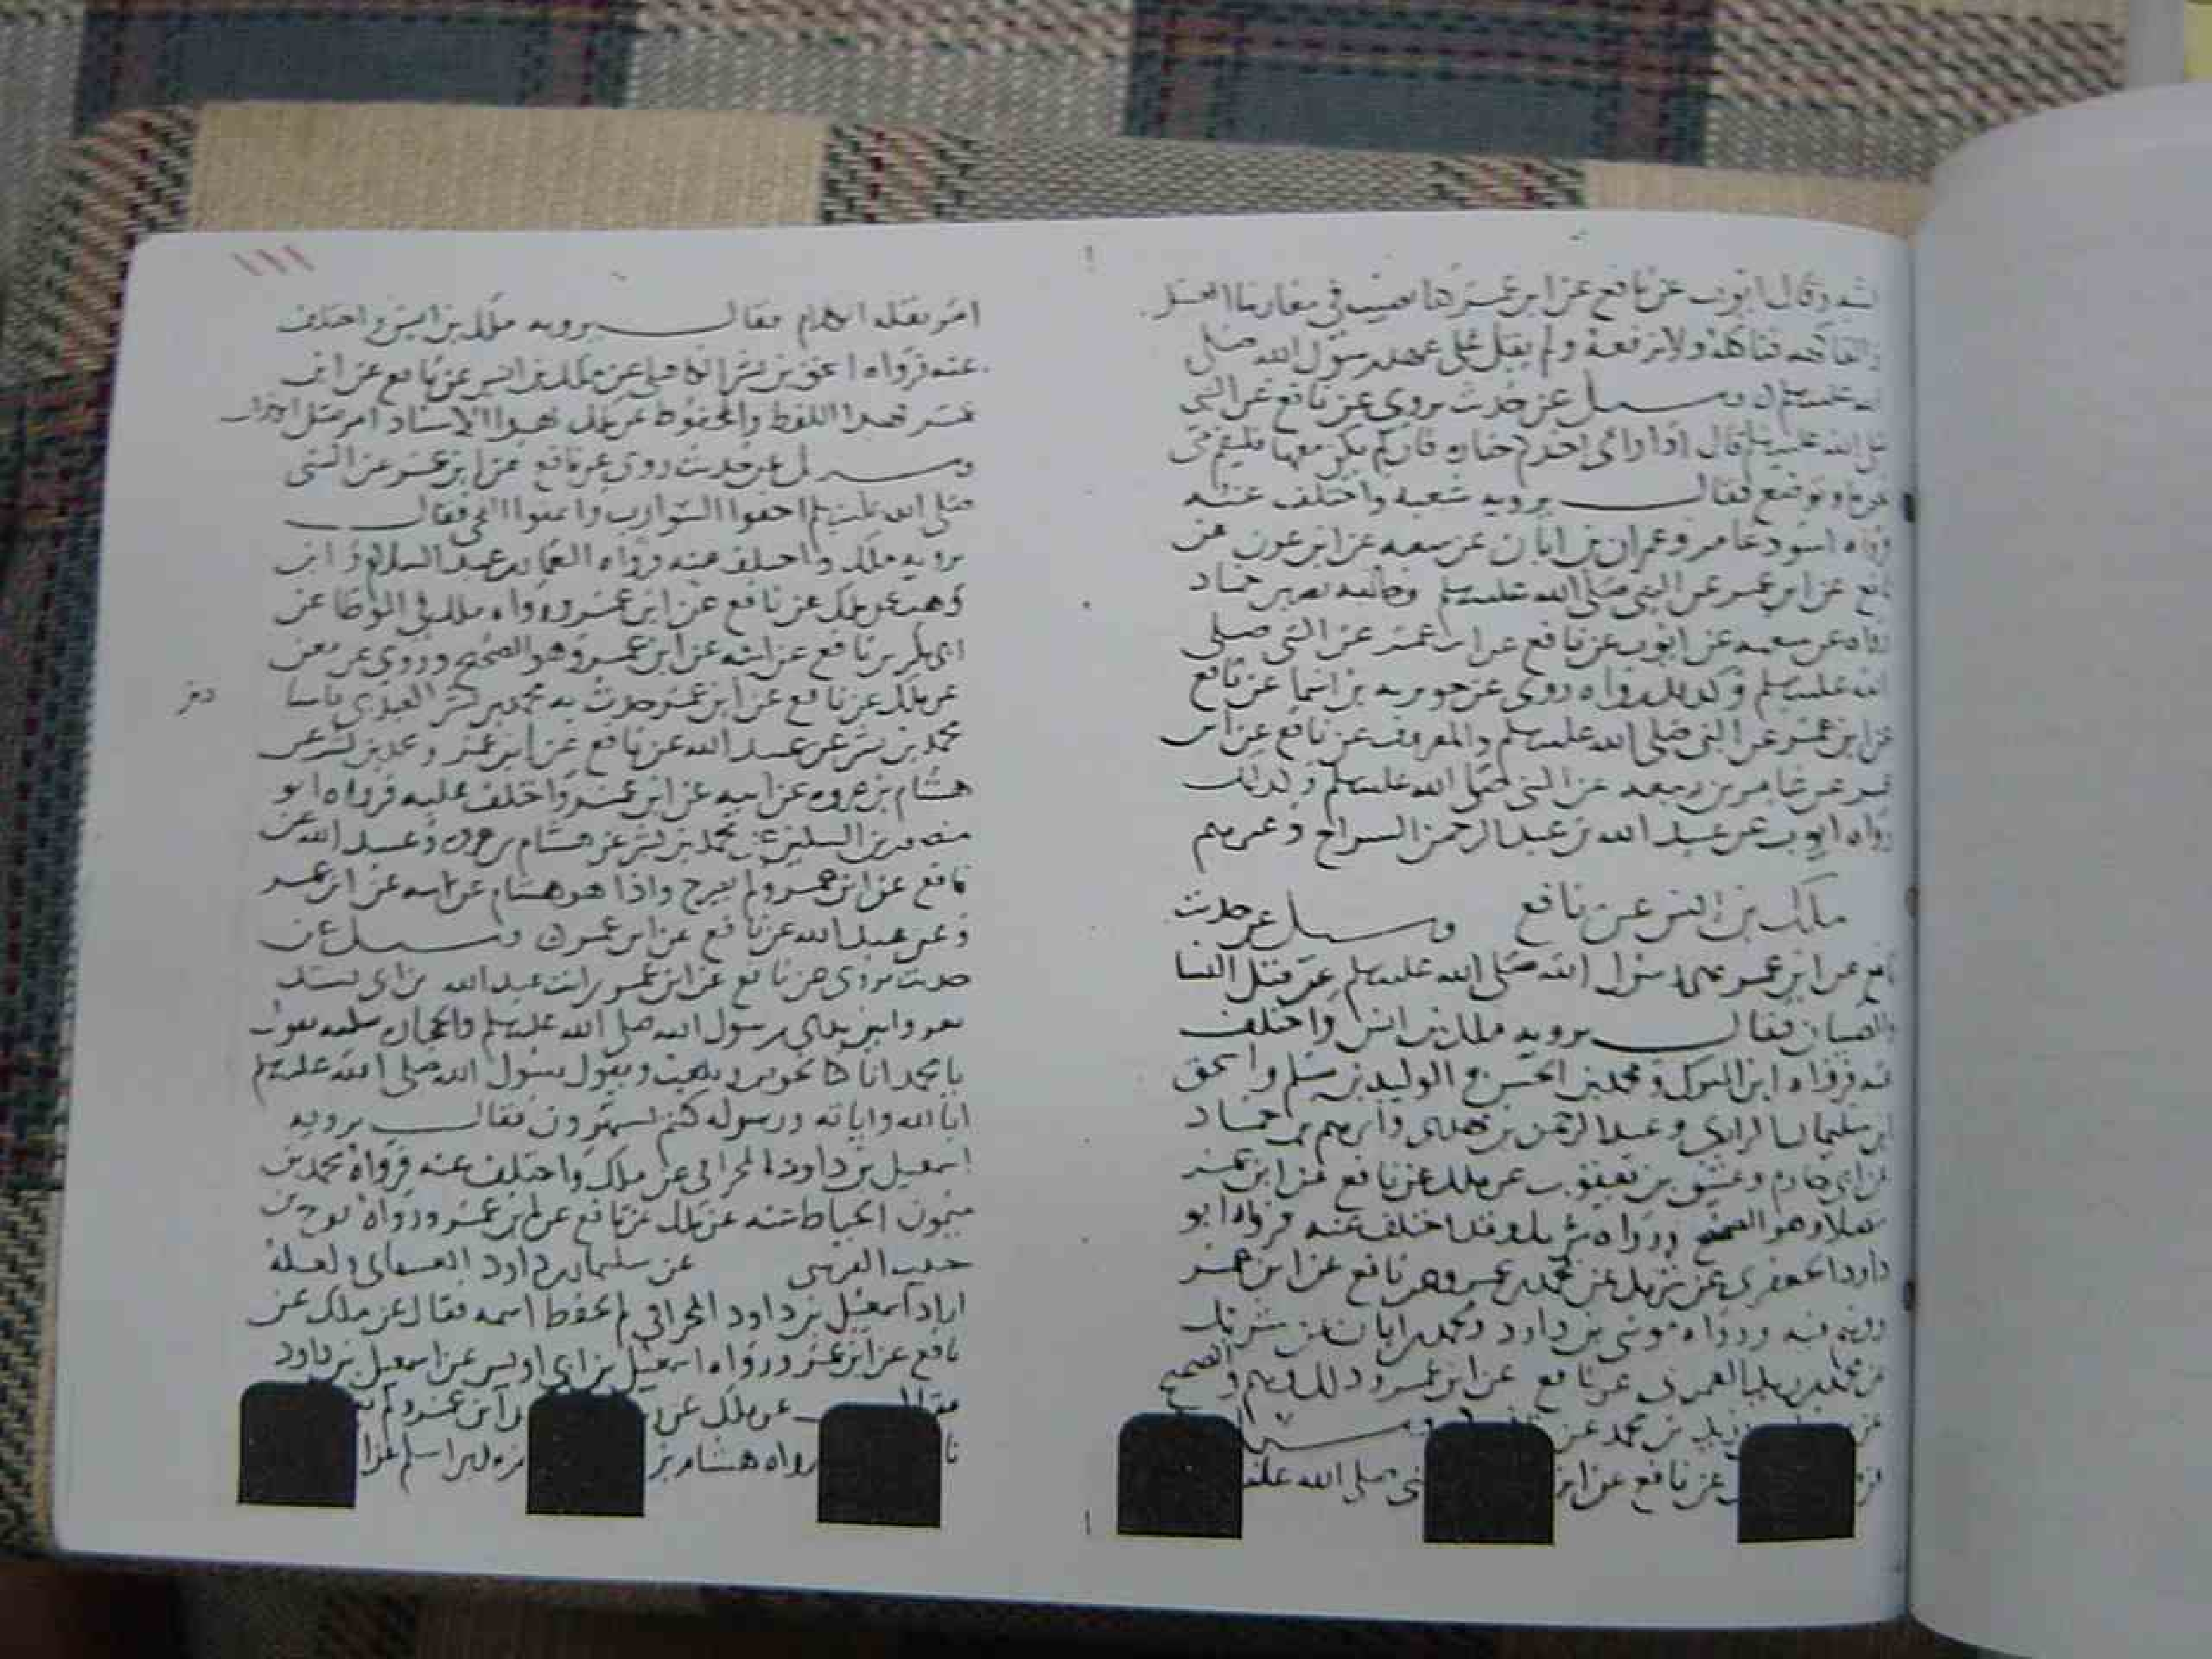 وقال ايوب عن نافع عن ابن عمر كنا نصيب في مغازينا العسل
فناكله ولا نرفعه ولم يقل على عهد رسول الله صلى
الله عليه وسلم وسيل عن حديث يروى عن نافع عن النبي
صلى الله عليه وسلم قال اذا راى احدكم جنازه فان لم يكن معها فليقم حتى
او توضع فقال يرويه شعبه واختلف عنه
فرواه اسود عامر وعمران بن ابان عن شعبه عن ابن عون عن
نافع عن ابن عمر عن النبي صلى الله عليه وسلم وخالفه نصر بن حماد
رواه عن شعبه عن ايوب عن نافع عن ابن عمر عن النبي صلى
الله عليه وسلم وكذلك رواه روى عن جويريه بن اسما عن نافع
عن ابن عمر عن النبي صلى الله عليه وسلم والمعروف عن نافع عن ابن
عمر عن عامر بن ربيعه عن النبي صلى الله عليه وسلم وكذلك
رواه ايوب عن عبيد الله بن عبد الرحمن السراج وغيرهم
ملك بن انس عن نافع وسيل عن حديث
نافع عن ابن عمر نهى رسول الله صلى الله عليه وسلم عن قتل النسا
والصبيان فقال يرويه ملك بن انس واختلف
عنه فرواه ابن المبرك ومحمد بن الحسن و الوليد بن مسلم واسحق
ابن سليمان الرازى وعبد الرحمن بن مهدى وابرهيم بن حماد
بن ابي حازم وعتيق بن يعقوب عن ملك عن نافع عن ابن عمر
متصلا وهو الصحيح ورواه شريك وقد اختلف عنه فرواه ابو
داود الحفري عن شريك عن محمد بن عمرو عن نافع عن ابن عمر
ووهم فيه ورواه موسى بن داود ومحمد بن ابان عن شريك
عن محمد بن زيد العمرى عن نافع عن ابن عمر وذلك وهم والصحيح
عن زيد بن محمد عن وسيل
عن نافع عن ابن صلى الله عليه
١١١
امر بقتل الكلاب فقال يرويه ملك بن انس واختلف
عنه فرواه اسحق بن بشر الكاهلي عن ملك بن انس عن نافع عن ابن
عمر بهذا اللفظ والمحفوظ عن ملك بهذا الاسناد امر بقتل الكلاب
وسيل عن حديث روى عن نافع عن ابن عمر عن النبي
صلى الله عليه وسلم احفوا الشوارب واعفوا اللحى فقال
يرويه ملك واختلف عنه فرواه النعمان بن عبد السلام وابن
وهب عن ملك عن نافع عن ابن عمر ورواه ملك في الموطا عن
ابي بكر بن نافع عن ابيه عن ابن عمر وهو الصحيح وروى عن معن
عن ملك عن نافع عن ابن عمر حدث به محمد بن بشر العبدي
محمد بن بشر عن عبيد الله عن نافع عن ابن عمر وعن بن بشر عن
هشام بن عروه عن ابيه عن ابن عمر واختلف عليه فرواه ابو
عن محمد بن بشر عن هشام بن عروه وعبيد الله عن
نافع عن ابن عمر ولم يشرح واذا هو هشام عن ابيه عن ابن عمر
وعن عبيد الله عن نافع عن ابن عمر وسيل عن
حديث يروى عن نافع عن ابن عمر رايت عبد الله بن ابى يشتد
بين يدي رسول الله صلى الله عليه وسلم والحجاره تنكبه يقول
يا محمد انا كنا نخوض ونلعب ويقول رسول الله صلى الله عليه وسلم
ابالله واياته ورسوله كنتم تستهزون فقال يرويه
اسمعيل بن داود المخراقي عن ملك واختلف عنه فرواه محمد بن
ميمون الخياط عنه عن ملك عن نافع عن ابن عمر ورواه نوح بن
حبيب القومسي عن سليمان بن داود ولعله
اراد اسمعيل بن داود المخراقي لم يحفظ اسمه فقال عن ملك عن
نافع عن ابن عمر ورواه اسمعيل بن ابي اويس عن اسمعيل بن داود
فقال عن ملك عن ابن عمر ولم
رواه هشام بن اسلم عن